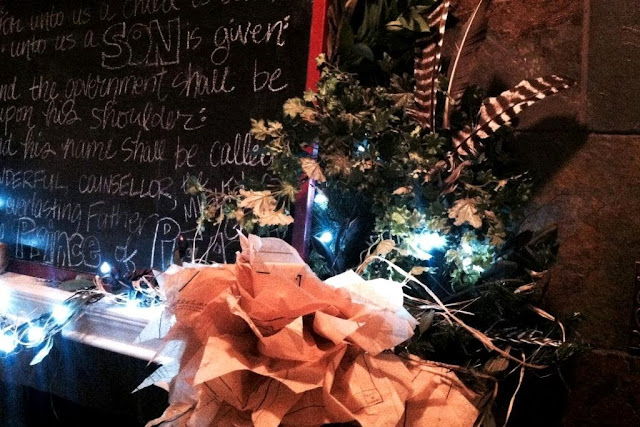 For unto us a child is
unto us a SON is given:
and the government shall be
upon his shoulder:
and his name shall be called
WONDERFUL, COUNSELLOR,
Everlasting Father,
Prince of